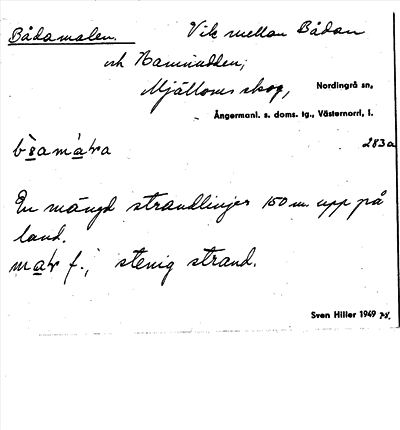 Bådamalen. Vik mellan Bådan
och Hamnudden;
Mjältoms skog, Nordingrå sn,
Ångermanl. s. doms. tg., Västernorrl, l.
283a
En mängd strandlinjer 150 m. upp på
land.
f., stenig strand.
Sven Hiller 1949